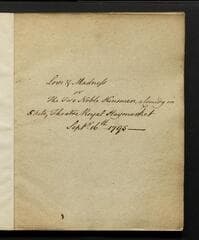 Love & Madness
or
The Two Noble Kinsmen, a Comedy in
5 Acts, Theatre Royal Haymarket
Septr. 16th 1795 —